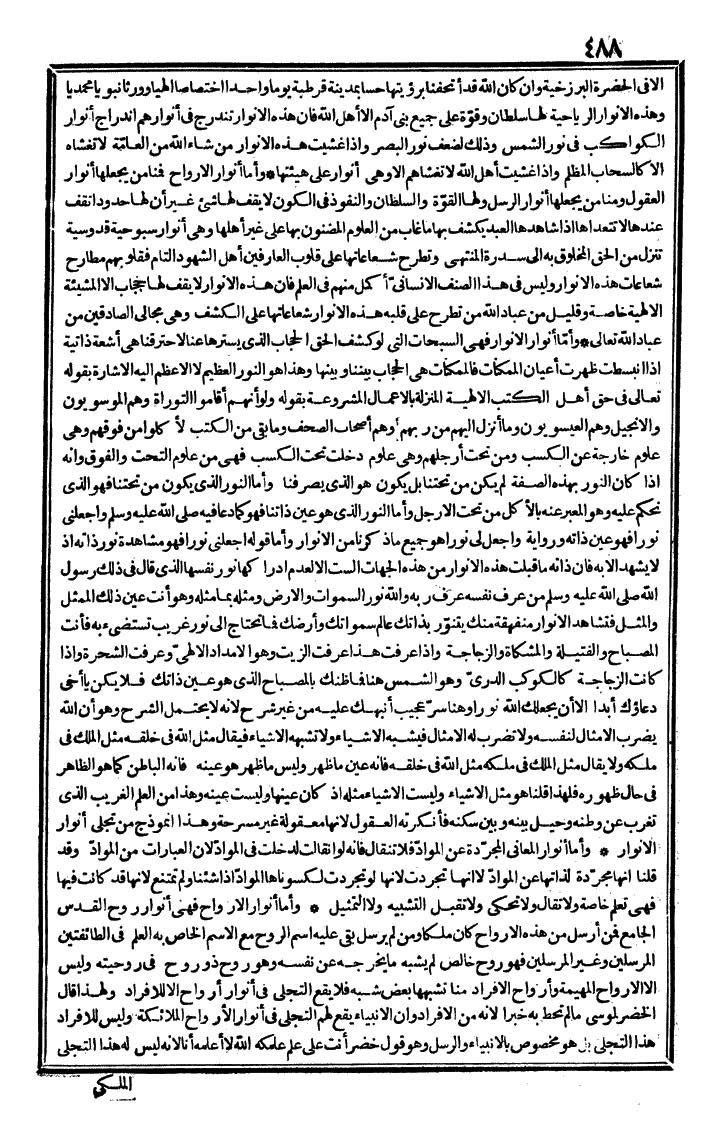 ٤٨٨
الافى الحضرة البرزخية وان كان الله قد أتحفنا برؤيتها حسا بمدينة قرطبة يوما واحدا اختصاصا الهيا وورثا نبويا محمديا
وهذه الانوار الرياحية لها سلطان وقوّة على جميع بنى آدم الا أهل الله فان هذه الانوار تندرج فى أنوارهم اندراج أنوار
الكواكب فى نور الشمس وذلك لضعف نور البصر واذا غشيت هذه الانوار من شاء الله من العامّة لا تغشاه
الا كالسحاب المظلم واذا غشيت أهل الله لا تغشاهم الا وهى أنوار على هيئتها * وأما أنوار الارواح فمنا من يجعلها أنوار
العقول ومنا من يجعلها أنوار الرسل ولها القوّة والسلطان والنفوذ فى الكون لا يقف لها شئ غير أن لها حدودا تقف
عندها لا تتعداها اذا شاهدها العبد يكشف بها ما غاب من العلوم المضنون بها على غير أهلها وهى أنوار سبوحية قدوسية
تنزل من الحق المخلوق به الى سدرة المنتهى وتطرح شعاعاتها على قلوب العارفين أهل الشهود التام فقلوبهم مطارح
شعاعات هذه الانوار وليس فى هذا الصنف الانسانىّ أكمل منهم فى العلم فان هذه الانوار لا يقف لها حجاب الا المشيئة
الالهية خاصة وقليل من عباد الله من تطرح على قلبه هذه الانوار شعاعاتها على الكشف وهى مجالى الصادقين من
عباد الله تعالى * وأمّا أنوار الانوار فهى السبحات التى لو كشف الحق الحجاب الذى يسترها عنا لاحترقنا هى أشعة ذاتية
اذا انبسطت ظهرت أعيان الممكنات فالممكنات هى الحجاب بيننا وبينها وهذا هو النور العظيم لا الاعظم اليه الاشارة بقوله
تعالى فى حق أهل الكتب الالهية المنزلة بالاعمال المشروعة بقوله ولو أنهم أقاموا التوراة وهم الموسويون
والانجيل وهم العيسويون وما أنزل اليهم من ربهم وهم أصحاب الصحف وما بقى من الكتب لأ كلوا من فوقهم وهى
علوم خارجة عن الكسب ومن تحت أرجلهم وهى علوم دخلت تحت الكسب فهى من علوم التحت والفوق وانه
اذا كان النور بهذه الصفة لم يكن من تحتنا بل يكون هو الذى يصرفنا وأما النور الذى يكون من تحتنا فهو الذى
نحكم عليه وهو المعبر عنه بالأ كل من تحت الارجل وأما النور الذى هو عين ذاتنا فهو كما دعا فيه صلى الله عليه وسلم واجعلنى
نورا فهو عين ذاته ورواية واجعل لى نورا هو جميع ما ذكرنا من الانوار وأما قوله اجعلنى نورا فهو مشاهدة نور ذاته اذ
لا يشهد الا به فان ذاته ما قبلت هذه الانوار من هذه الجهات الست الا لعدم ادراكها نور نفسها الذى قال فى ذلك رسول
الله صلى الله عليه وسلم من عرف نفسه عرف ربه والله نور السموات والارض ومثله بما مثله وهو أنت عين ذلك الممثل
والمثل فتشاهد الانوار منفهقة منك يتنوّر بذاتك عالم سمواتك وأرضك فما تحتاج الى نور غريب تستضىء به فأنت
المصباح والفتيلة والمشكاة والزجاجة واذا عرفت هذا عرفت الزيت وهو الامداد الالهىّ وعرفت الشجرة واذا
كانت الزجاجة كالكوكب الدرىّ وهو الشمس هنا فما ظنك بالمصباح الذى هو عين ذاتك فلا يكن يا أخى
دعاؤك أبدا الا أن يجعلك الله نورا وهنا سرّ عجيب أنبهك عليه من غير شرح لانه لا يحتمل الشرح وهو أن الله
يضرب الامثال لنفسه ولا تضرب له الامثال فيشبه الاشياء ولا تشبهه الاشياء فيقال مثل الله فى خلقه مثل الملك فى
ملكه ولا يقال مثل الملك فى ملكه مثل الله فى خلقه فانه عين ما ظهر وليس ما ظهر هو عينه فانه الباطن كما هو الظاهر
فى حال ظهوره فلهذا قلنا هو مثل الاشياء وليست الاشياء مثله اذ كان عينها وليست عينه وهذا من العلم الغريب الذى
تغرب عن وطنه وحيل بينه وبين سكنه فأنكرته العقول لانها معقولة غير مسرحة وهذا انموذج من تجلى أنوار
الانوار * وأما أنوار المعانى المجرّدة عن الموادّ فلا تنقال فانه لو انقالت لدخلت فى الموادّ لان العبارات من الموادّ وقد
قلنا انها مجرّدة لذاتها عن الموادّ لا انها تجردت لانها لو تجردت لكسوناها الموادّ اذا شئنا ولم تمتنع لانها قد كانت فيها
فهى تعلم خاصة ولا تقال ولا تحكى ولا تقبل التشبيه ولا التمثيل * وأما أنوار الارواح فهى أنوار روح القدس
الجامع فمن أرسل من هذه الارواح كان ملكا ومن لم يرسل بقى عليه اسم الروح مع الاسم الخاص به العلم فى الطائفتين
المرسلين وغير المرسلين فهو روح خالص لم يشبه ما يخرجه عن نفسه وهو روح ذو روح فى روحيته وليس
الا الارواح المهيمة وأرواح الافراد منا تشبهها بعض شبه فلا يقع التجلى فى أنوار أرواح الا للافراد ولهذا قال
الخضر لموسى ما لم تحط به خبرا لانه من الافراد وان الانبياء يقع لهم التجلى فى أنوار الأرواح الملائكة وليس للافراد
هذا التجلى بل هو مخصوص بالانبياء والرسل وهو قول خضر أنت على علم علمكه الله لا أعلمه أنا لانه ليس له هذا التجلى
الملكى